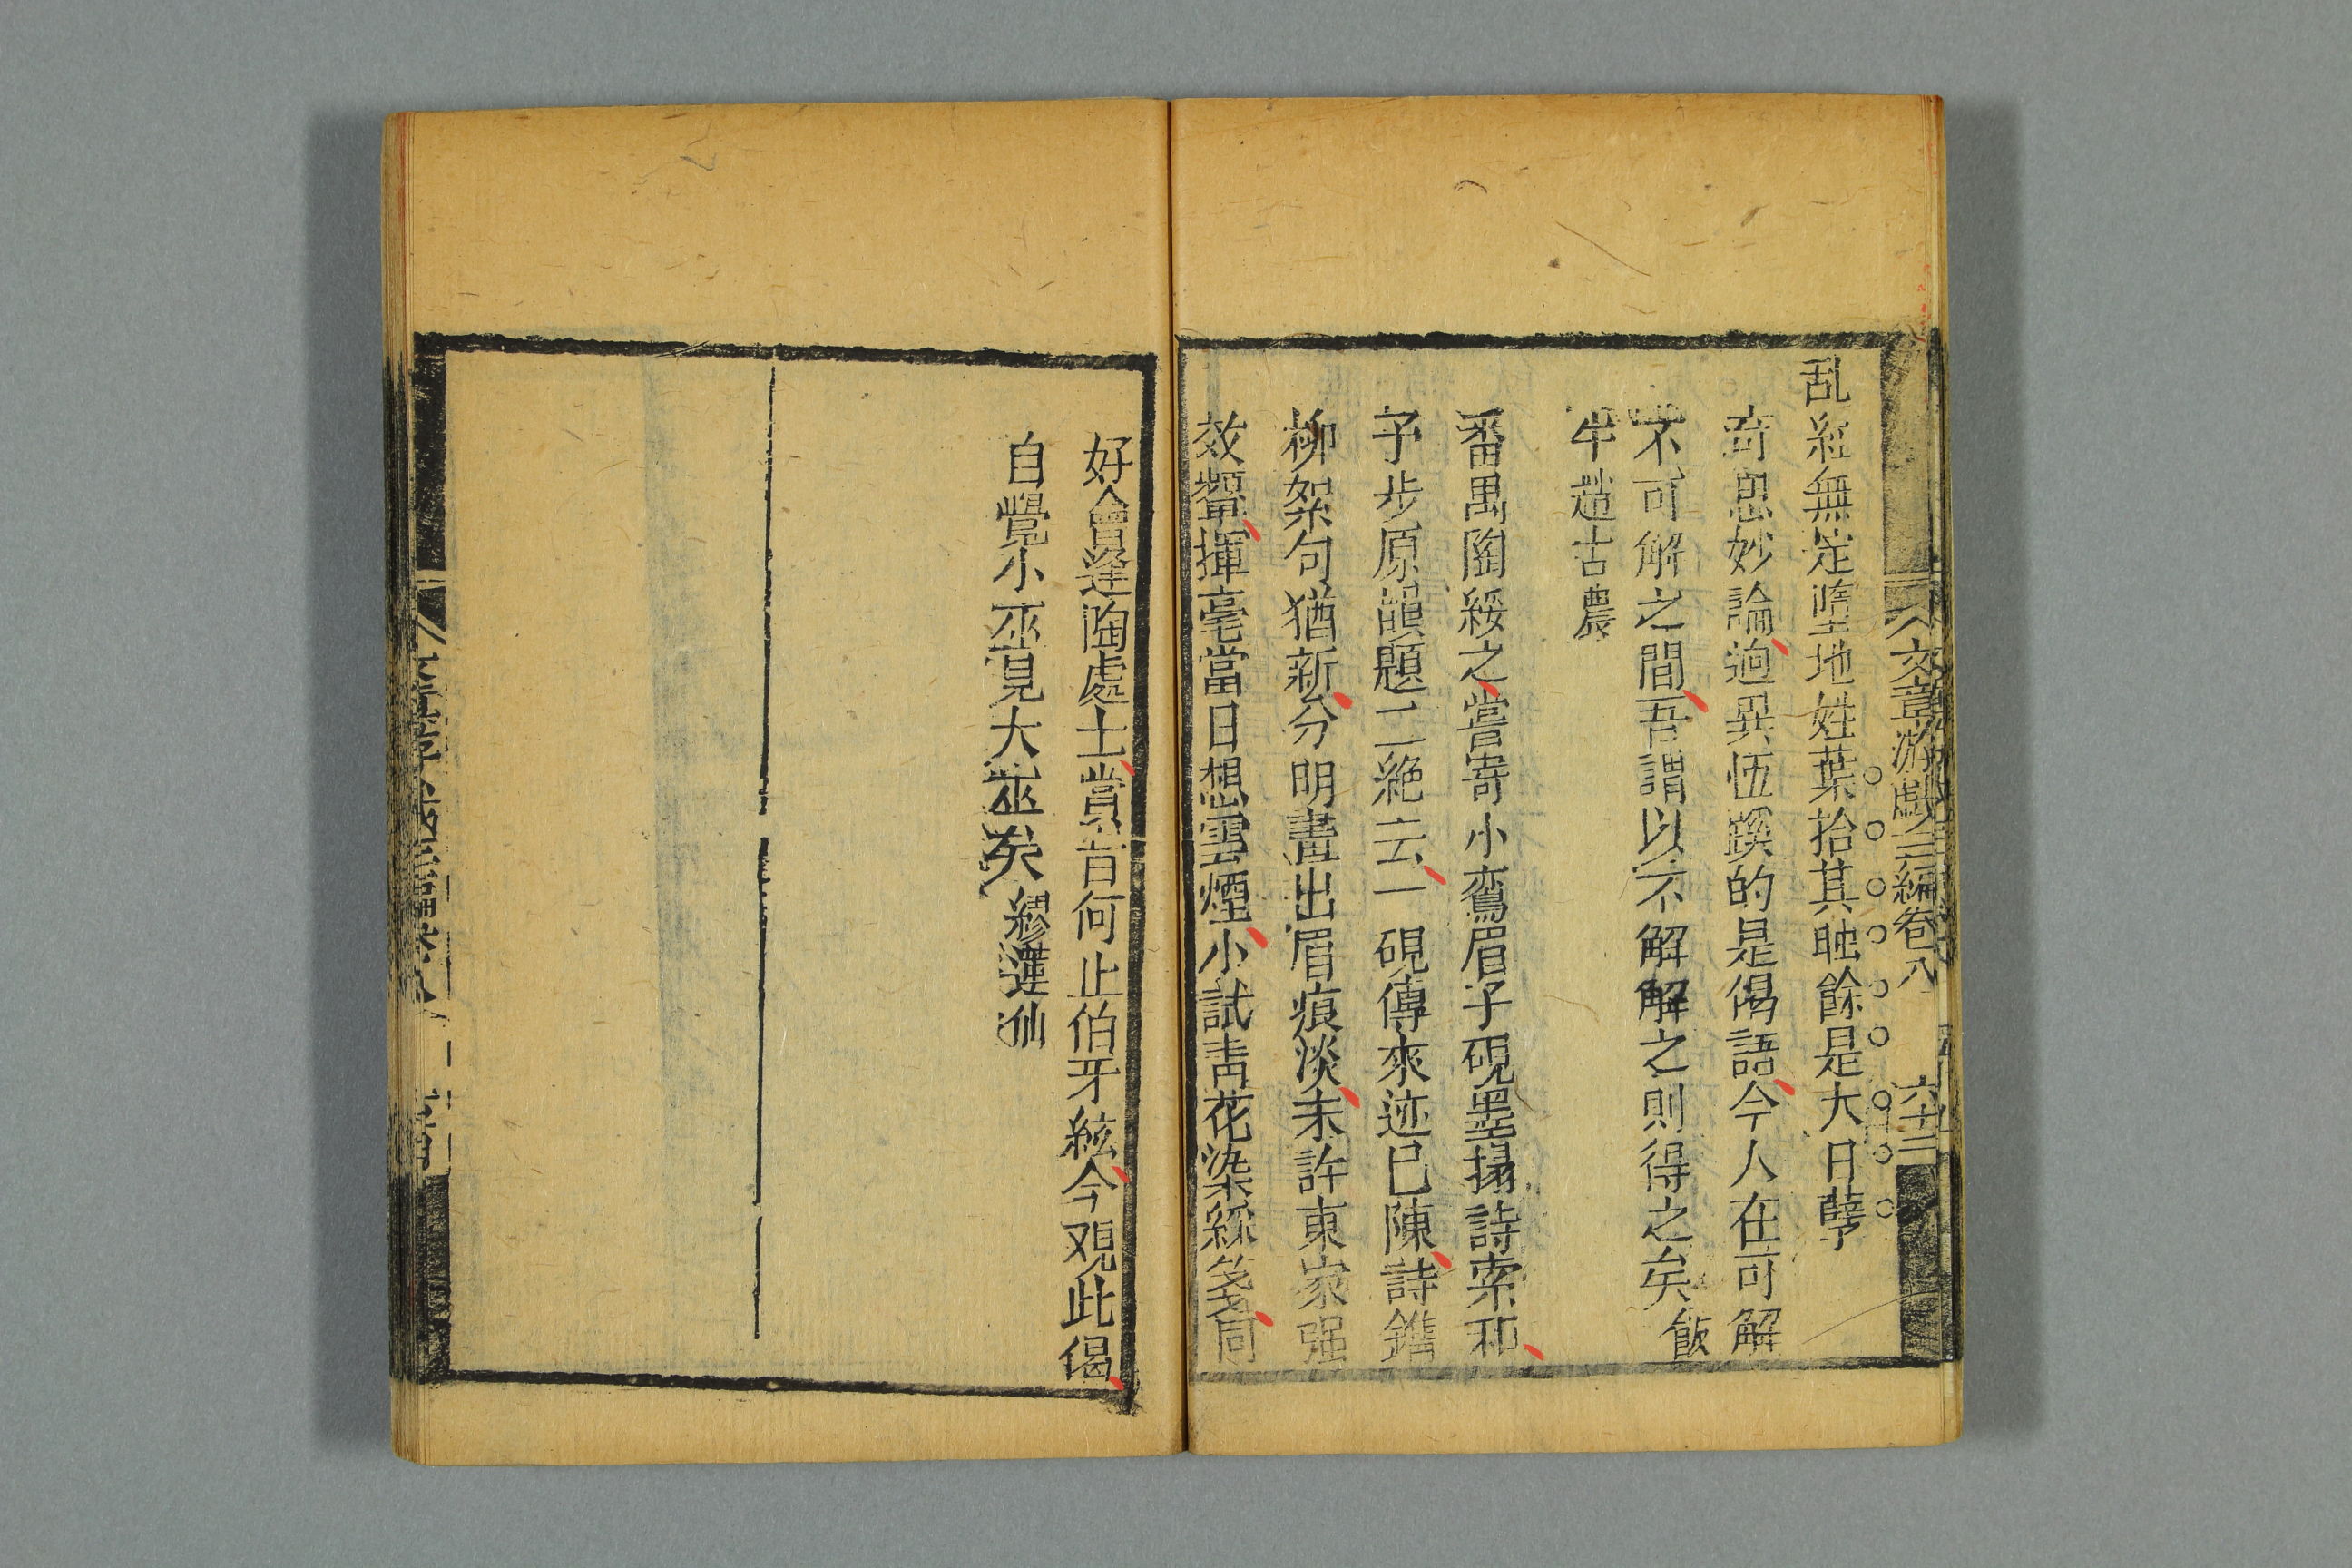 文章游戲三編卷八 六十二
乱紅無定墮地姓葉拾其朏餘是大日孽
奇思妙論逈異恆蹊的是偈語今人在可解
不可解之間吾謂以不解解之則得之矣飯
牛趙古農
番禺陶綏之嘗寄小鸞眉子硯墨搨詩索和
予步原韻題二絶云一硯傳來迹已陳詩鐫
柳絮句猶新分明畫出眉痕淡未許東家强
效顰揮毫當日想雲煙小試青花染綵箋同
好會逢陶處士賞音何止伯牙絃今观此偈
自覺小巫見大巫矣繆蓮仙